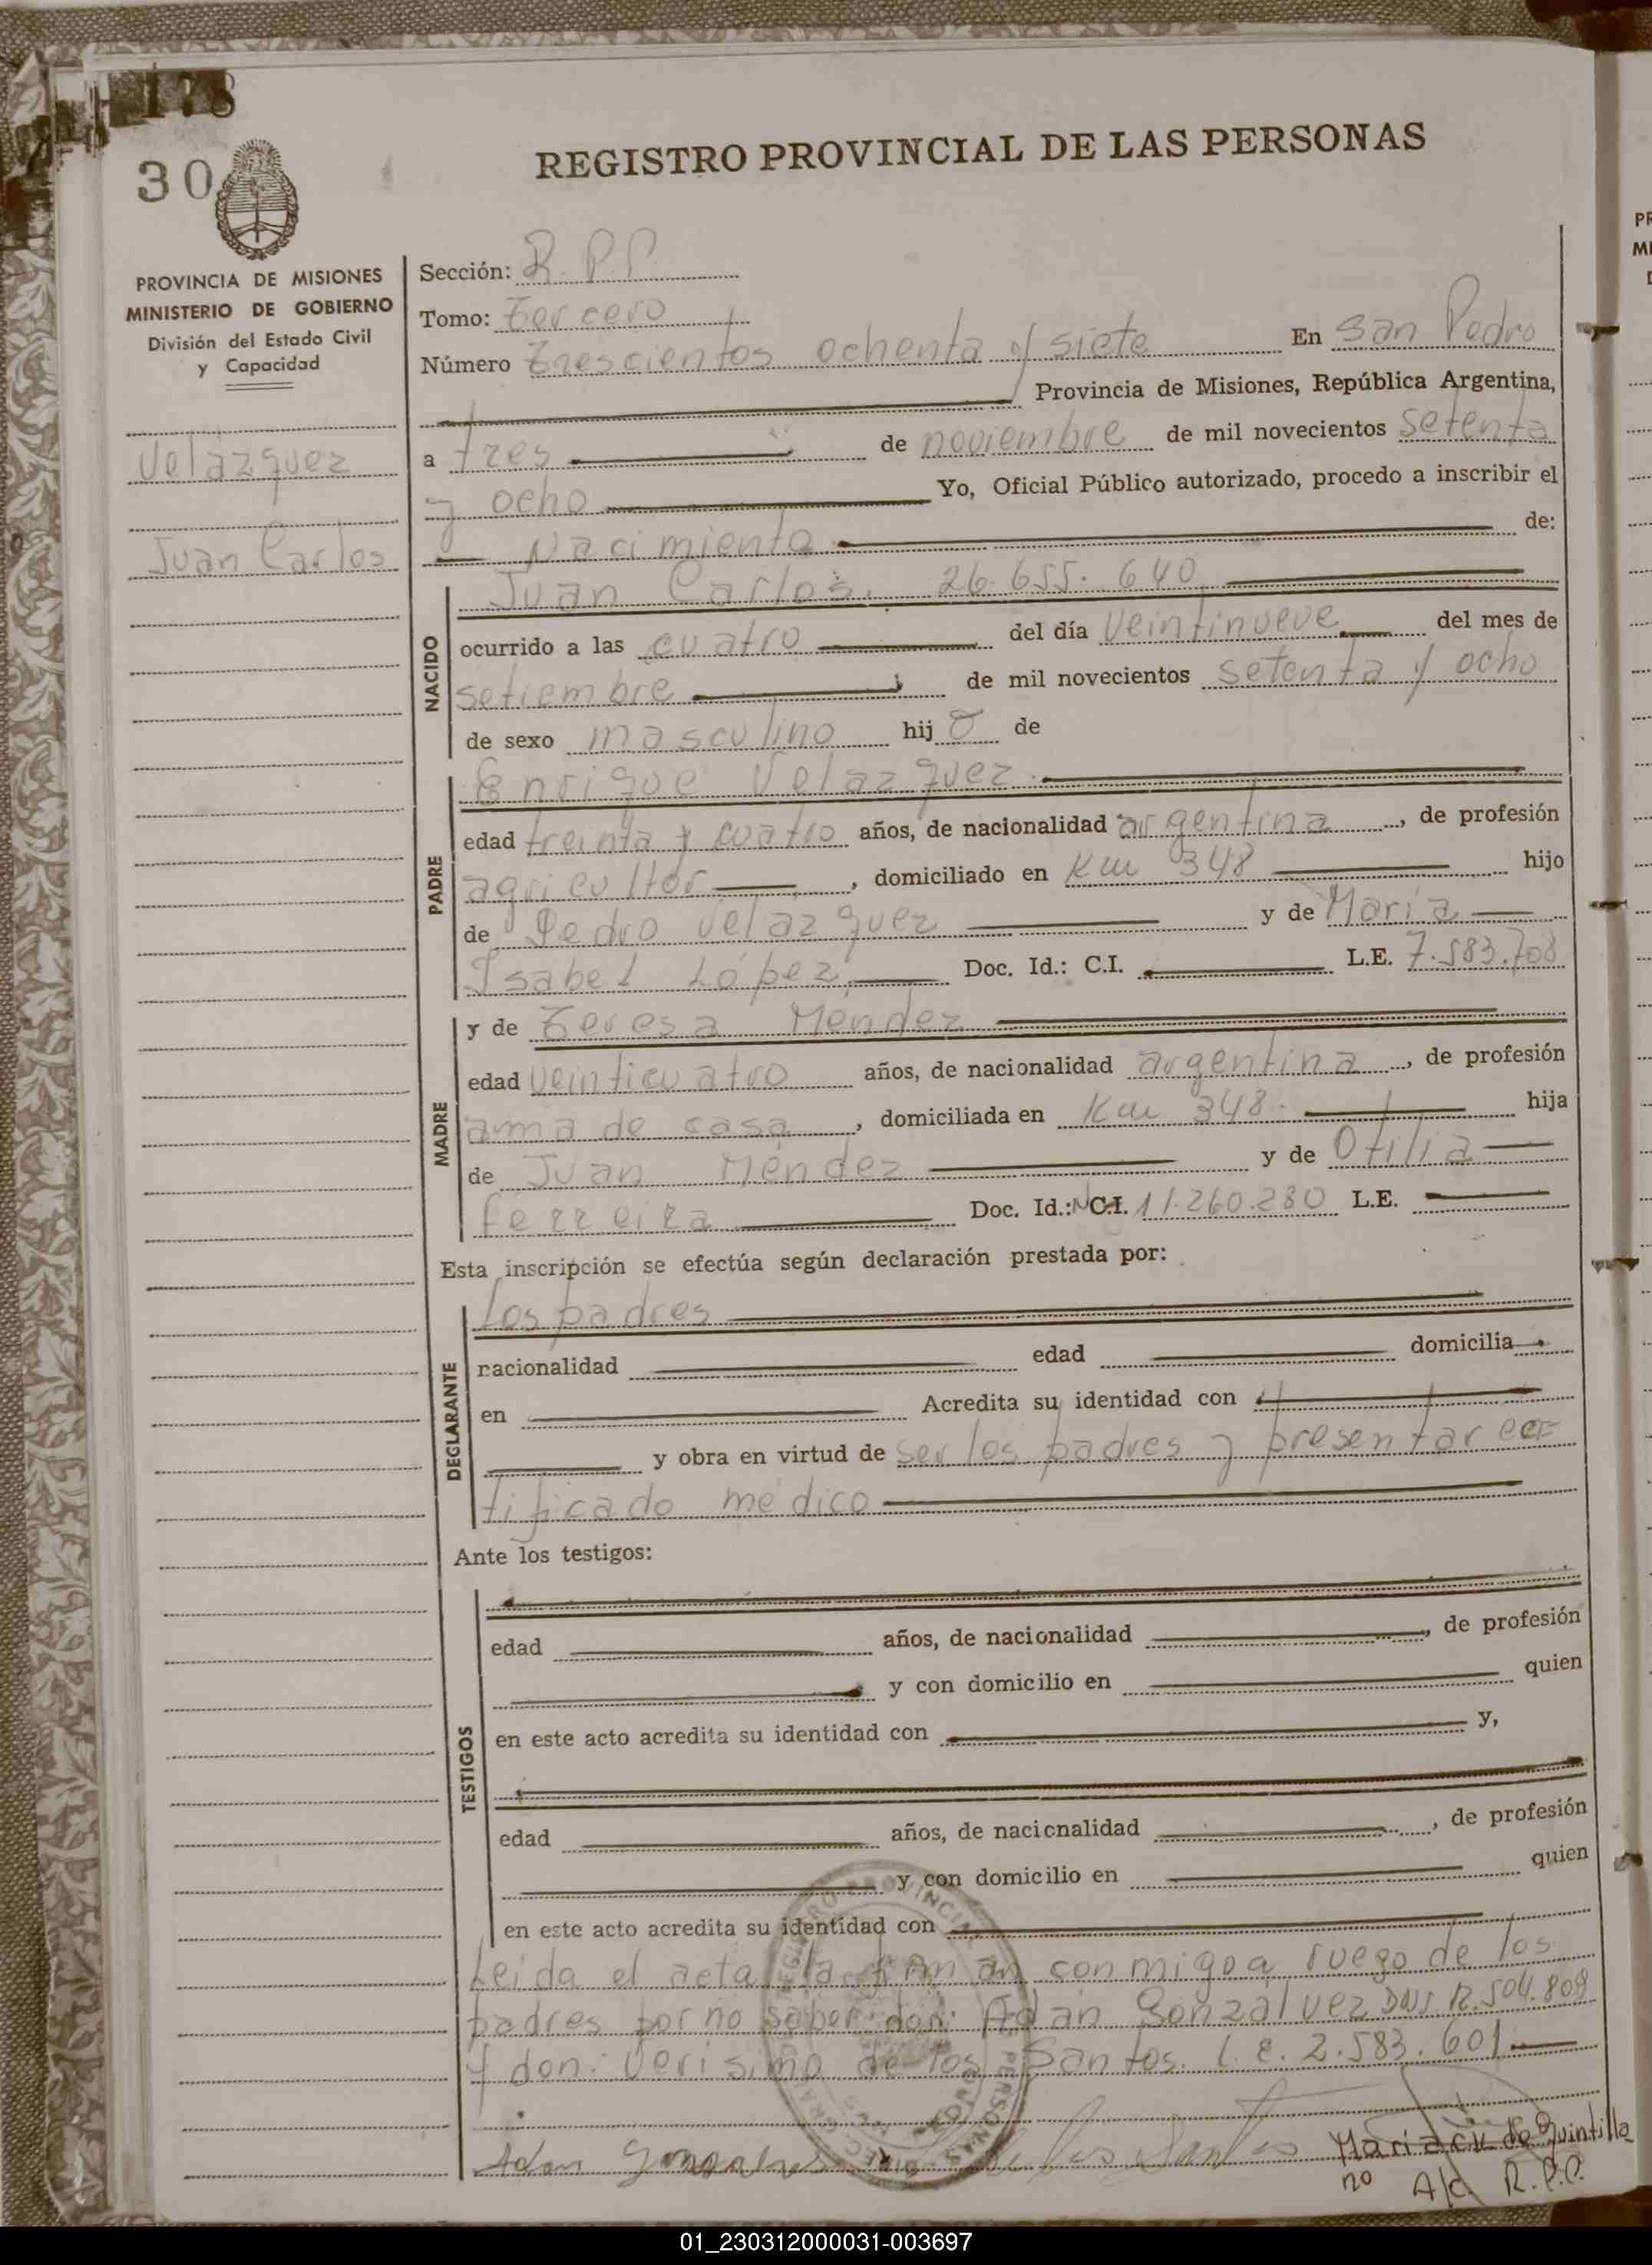 178
30
REGISTRO PROVINCIAL DE LAS PERSONAS
PROVINCIA DE MISIONES
MINISTERIO DE GOBIERNO
División del Estado Civil
y Capacidad
Velázquez
Juan Carlos
Sección: R.P.P.
Tomo: Tercero
Número Trescientos ochenta y siete En San Pedro
Provincia de Misiones, República Argentina,
a tres de noviembre de mil novecientos setenta
y ocho Yo, Oficial Público autorizado, procedo a inscribir el
Nacimiento de:
NACIDO
Juan Carlos. 26.655.640
ocurrido a las cuatro del día veintinueve del mes de
setiembre de mil novecientos setenta y ocho
de sexo masculino hijo de
PADRE
Enrique Velazquez
edad treinta y cuatro años, de nacionalidad argentina, de profesión
agricultor, domiciliado en Km 348 hijo
de Pedro Velazquez y de María
Isabel López, Doc. Id.: C.I. L.E. 7.583.708
MADRE
y de Teresa Méndez
edad veinticuatro años, de nacionalidad argentina, de profesión
ama de casa, domiciliada en Km 348. hija
de Juan Méndez y de Otilia
Ferreira Doc. Id.: C.I. 11.260.280 L.E.
Esta inscripción se efectúa según declaración prestada por:
DECLARANTE
Los padres
nacionalidad edad domicilia
en Acredita su identidad con
y obra en virtud de ser los padres y presentar cer
tificado médico
Ante los testigos:
TESTIGOS
edad años, de nacionalidad, de profesión
y con domicilio en quien
en este acto acredita su identidad con y,
edad años, de nacionalidad, de profesión
y con domicilio en quien
en este acto acredita su identidad con
Leida el acta la firman conmigo a ruego de los
padres por no saber don: Adan Gonzalvez DNI 12.504.809
y don: Verisimo de los Santos. L.E. 2.583.601
Adan Gonzalves de los Santos de Quintilla
A/c. R.P.P.
REGISTRO PROVINCIAL PERSONAS
01_230312000031-003697